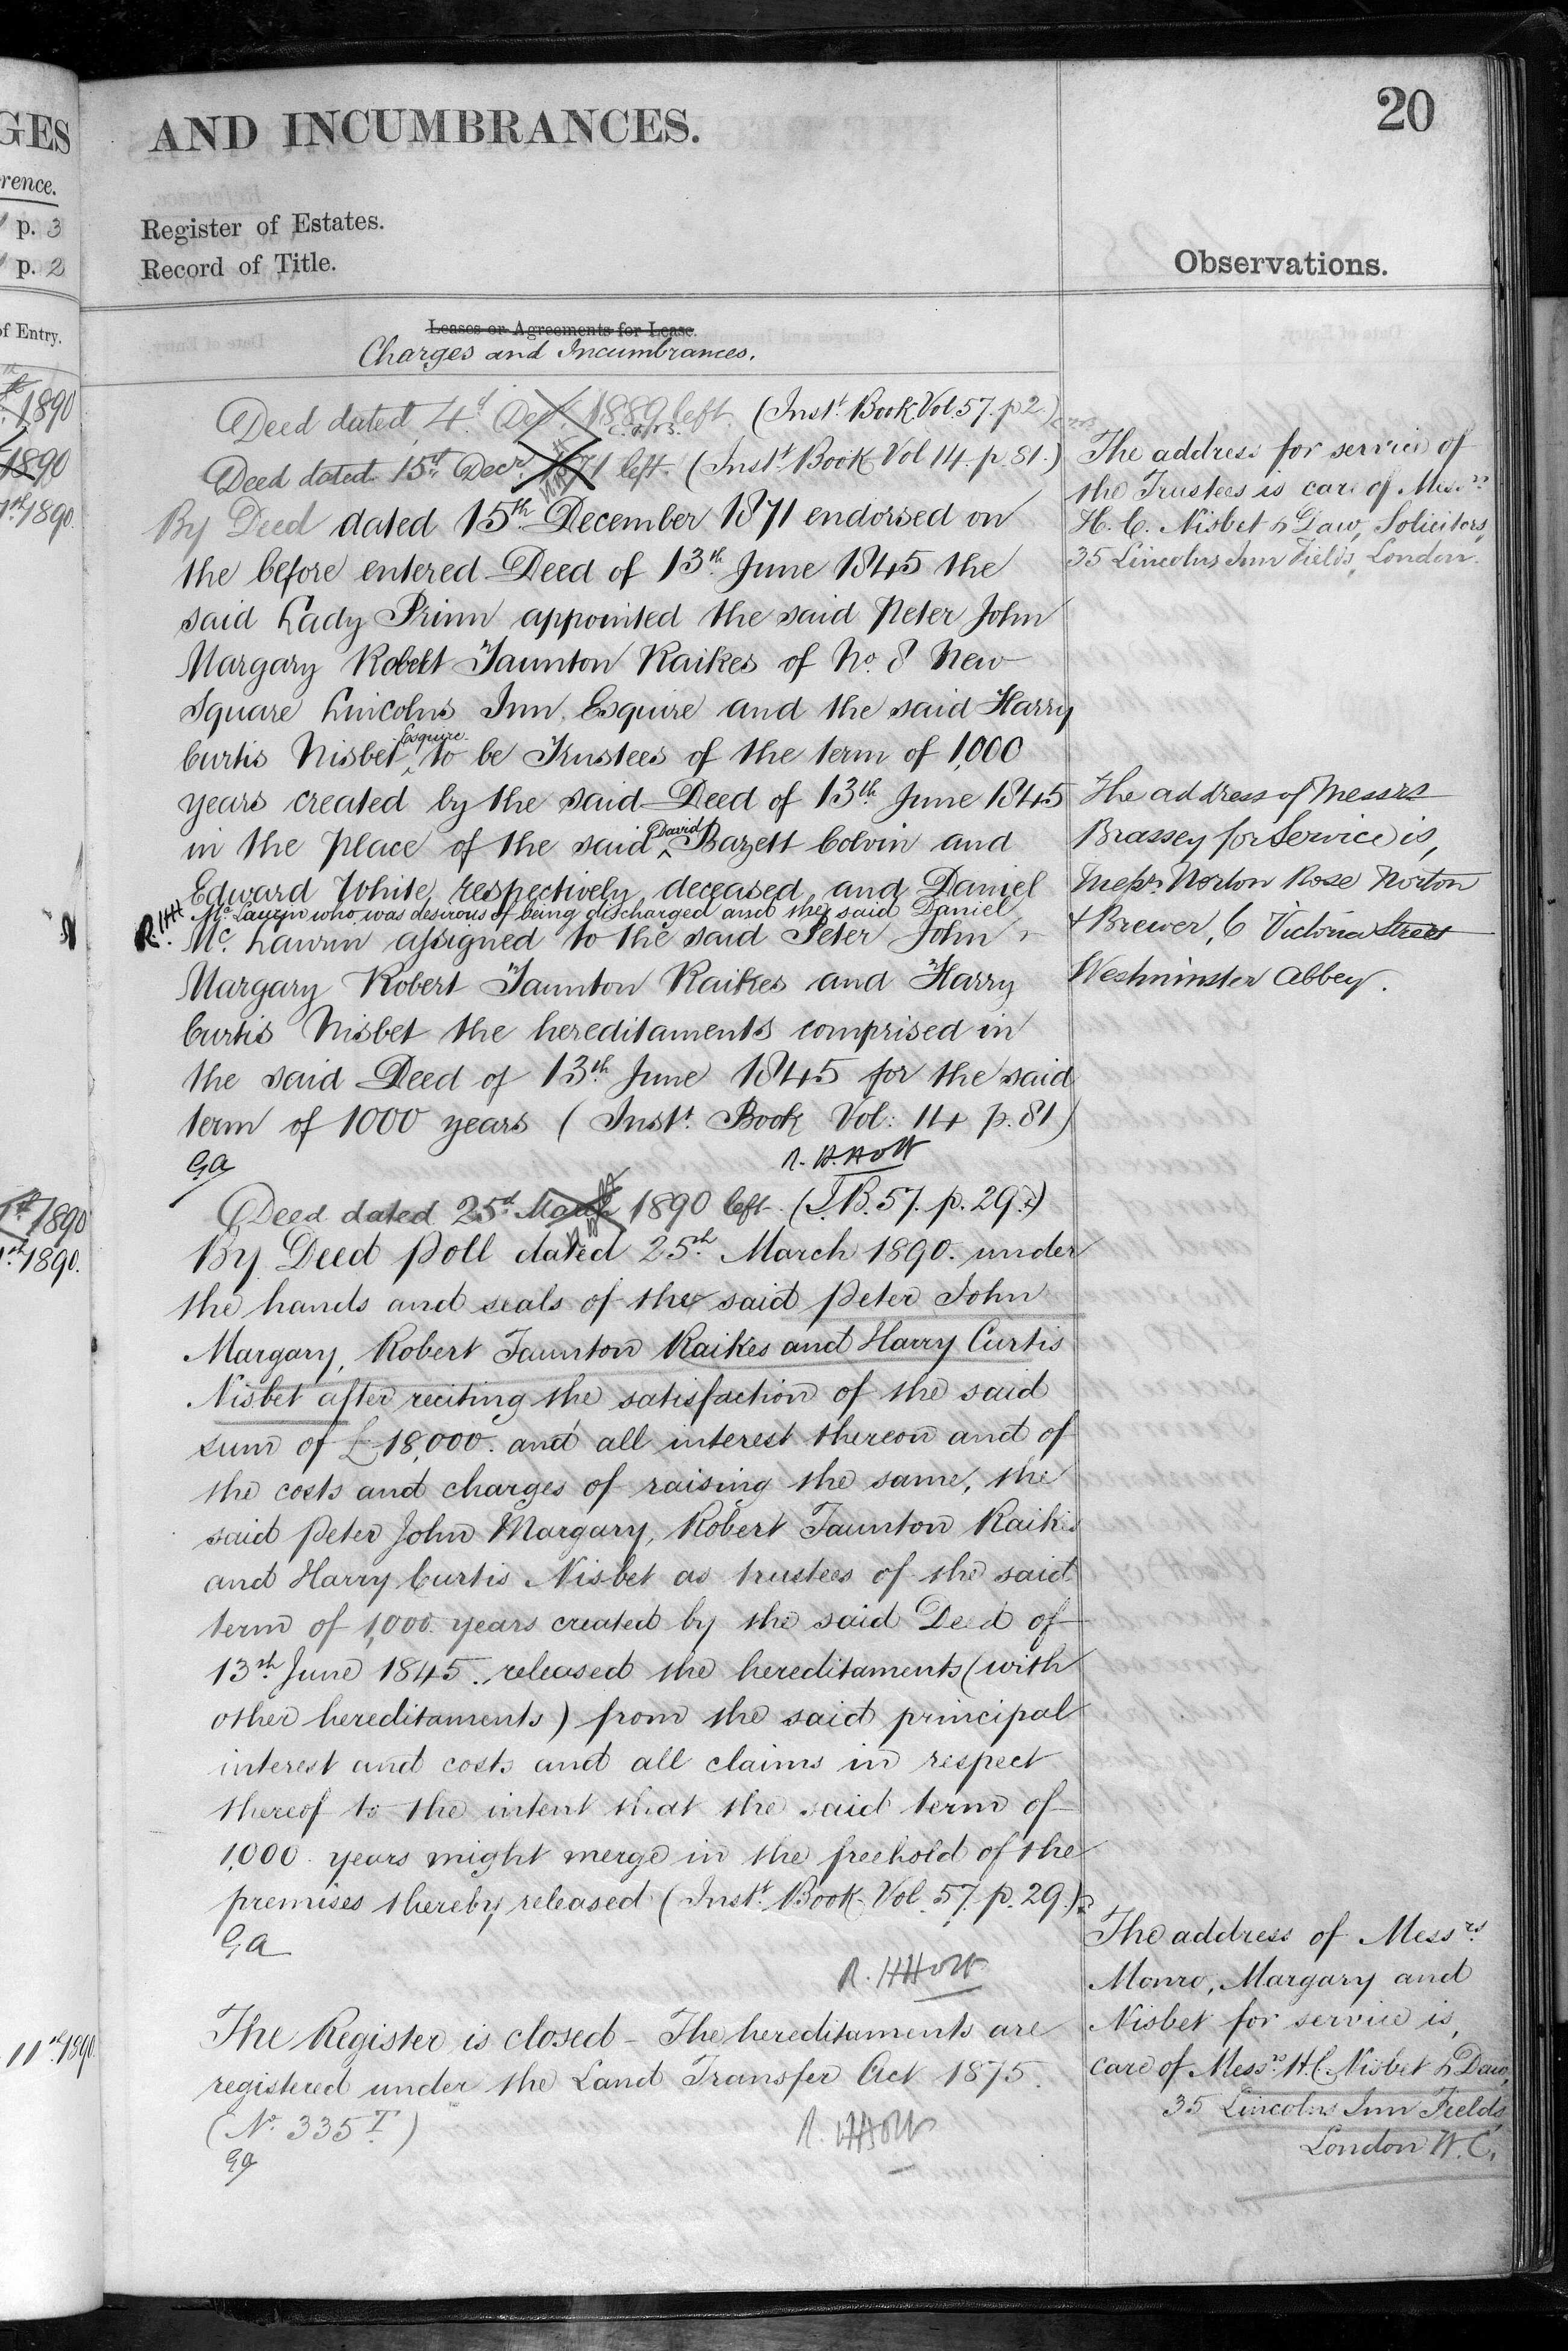 GES
rence.
p. 3
p. 2
of Entry.
1890
1890
1890.
1890
1890.
11th 1890.
AND INCUMBRANCES.
20
Register of Estates.
Record of Title.
Observations.
Leases or Agreements for Lease.
Charges and Incumbrances.
Deed dated 4th Decr. 1889 left. (Instt. Book Vol. 57. p 2.)
Deed dated 15th Decr 1871 left. (Instt. Book Vol 14. p. 81.)
By Deed dated 15th December 1871 endorsed on
the before entered Deed of 13th June 1845 the
said Lady Prinn appointed the said Peter John
Margary Robert Taunton Raikes of No. 8 New
Square Lincolns Inn, Esquire and the said Harry
Curtis Nisbet Esquire to be Trustees of the term of 1,000
years created by the said Deed of 13th June 1845
in the place of the said David Bazett Colvin and
Edward White, respectively deceased and Daniel
R.HH Mc. Laurin who was desirous of being discharged and the said Daniel
Mc. Laurin assigned to the said Peter John
Margary Robert Taunton Raikes and Harry
Curtis Nisbet the hereditaments comprised in
the said Deed of 13th June 1845 for the said
term of 1000 years (Instt. Book Vol: 14 p. 81)
GA
R. H. Holt
Deed dated 25th March 1890 left. (I.B. 57. p. 29.)
By Deed Poll dated 25th March 1890. under
the hands and seals of the said Peter John
Margary, Robert Taunton Raikes and Harry Curtis
Nisbet after reciting the satisfaction of the said
sum of £18,000. and all interest thereon and of
the costs and charges of raising the same, the
said Peter John Margary, Robert Taunton Raikes
and Harry Curtis Nisbet as trustees of the said
term of 1,000 years created by the said Deed of
13th June 1845. released the hereditaments (with
other hereditaments) from the said principal
interest and costs and all claims in respect
thereof to the intent that the said term of
1,000 years might merge in the freehold of the
premises thereby released (Instt. Book Vol. 57. p. 29.)
GA
R. H Holt
The Register is closed - The hereditaments are
registered under the Land Transfer Act 1875.
(No. 335 T.)
R. H Holt
GA
The address for service of
the Trustees is care of Messrs
H. C. Nisbet & Daw, Solicitors,
35 Lincolns Inn Fields, London.
The address of Messrs
Brassey for Service is,
Messrs Norton Rose Norton
& Brewer, 6 Victoria Street
Westminster Abbey.
The address of Messrs.
Monro, Margary and
Nisbet for service is,
care of Messrs. H. C. Nisbet & Daw,
35 Lincolns Inn Fields,
London W. C.